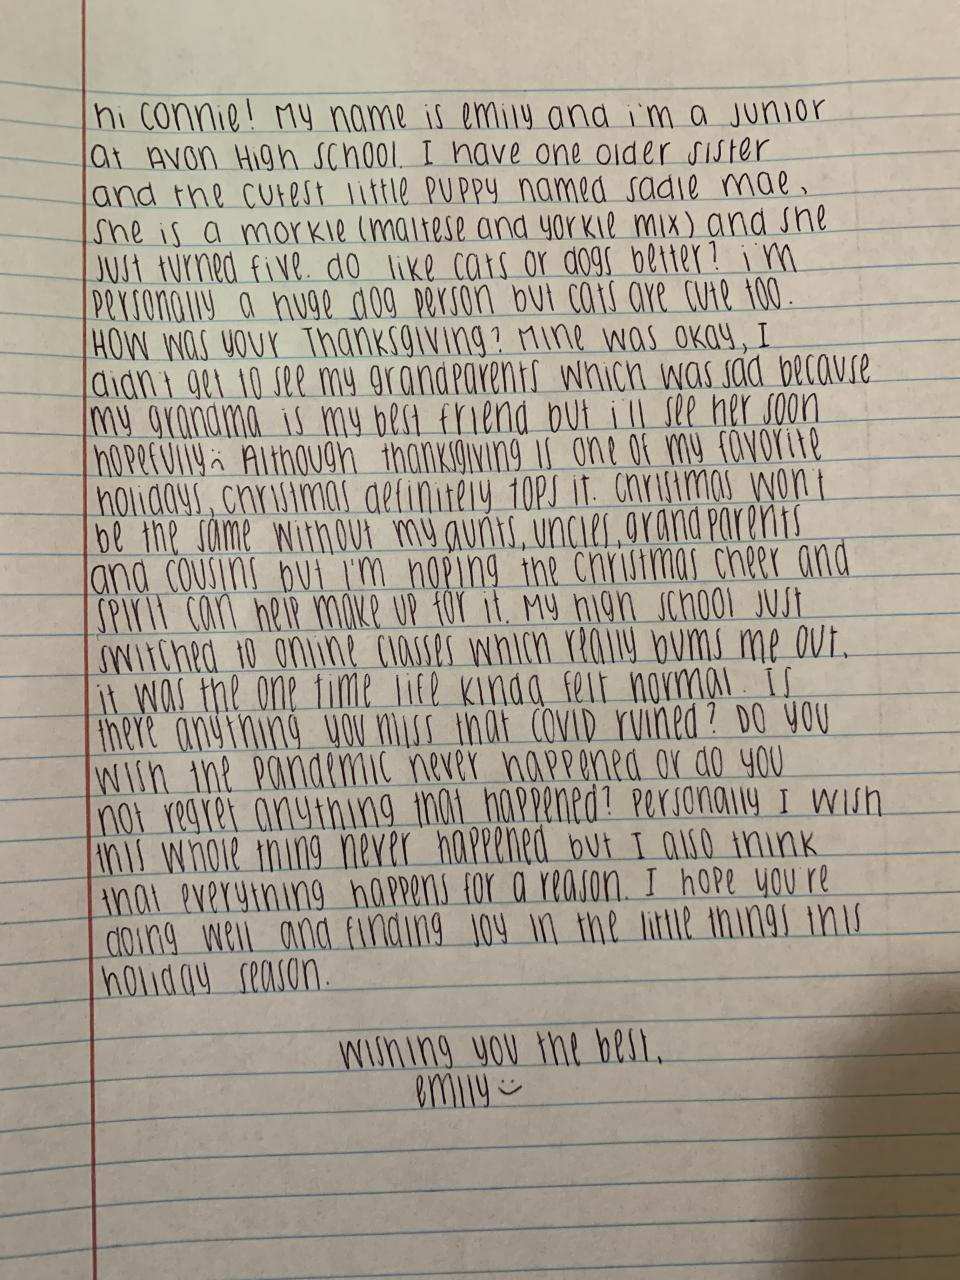 hi connie! My name is emily and i'm a junior
at Avon High School. I have one older sister
and the cutest little puppy named sadie mae.
she is a morkie (maltese and yorkie mix) and she
just turned five. do like cats or dogs better? i'm
personally a huge dog person but cats are cute too.
How was your Thanksgiving? Mine was okay, I
didn't get to see my grandparents which was sad because
my grandma is my best friend but i'll see her soon
hopefully :( Although thanksgiving is one of my favorite
holidays, christmas definitely tops it. Christmas won't
be the same without my aunts, uncles, grandparents
and cousins but i'm hoping the christmas cheer and
spirit can help make up for it. My high school just
switched to online classes which really bums me out.
it was the one time life kinda felt normal. Is
there anything you miss that COVID ruined? Do you
wish the pandemic never happened or do you
not regret anything that happened? Personally I wish
this whole thing never happened but I also think
that everything happens for a reason. I hope you're
doing well and finding joy in the little things this
holiday season.
wishing you the best,
emily :)